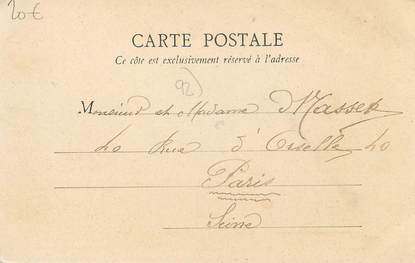 20€
CARTE POSTALE
Ce côté est exclusivement réservé à l'adresse
92
Monsieur et Madame Massek
40 Rue d' 40
Paris
Seine